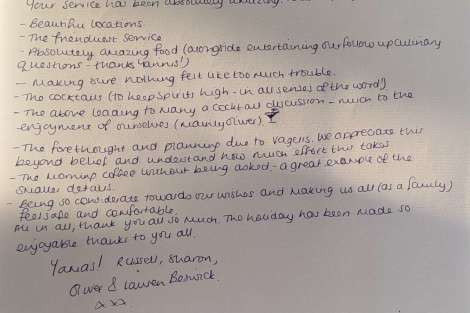 Your service has been absolutely amazing.
- Beautiful locations.
- The friendliest service
- Absolutely amazing food (alongside entertaining our follow up culinary
questions - thanks Yannis!)
- Making sure nothing felt like too much trouble.
- The cocktails (to keep spirits high - in all senses of the word)
- The above leading to many a cocktail discussion - much to the
enjoyment of ourselves (mainly Oliver)
- The forethought and planning due to We appreciate this
beyond belief and understand how much effort this takes
- The morning coffee without being asked - a great example of the
smaller details.
- Being so considerate towards our wishes and making us all (as a family)
feel safe and comfortable.
All in all, thank you all so much. The holiday has been made so
enjoyable thanks to you all.
Yamas! Russell, Sharon,
Oliver & Lauren Beswick.
xxx